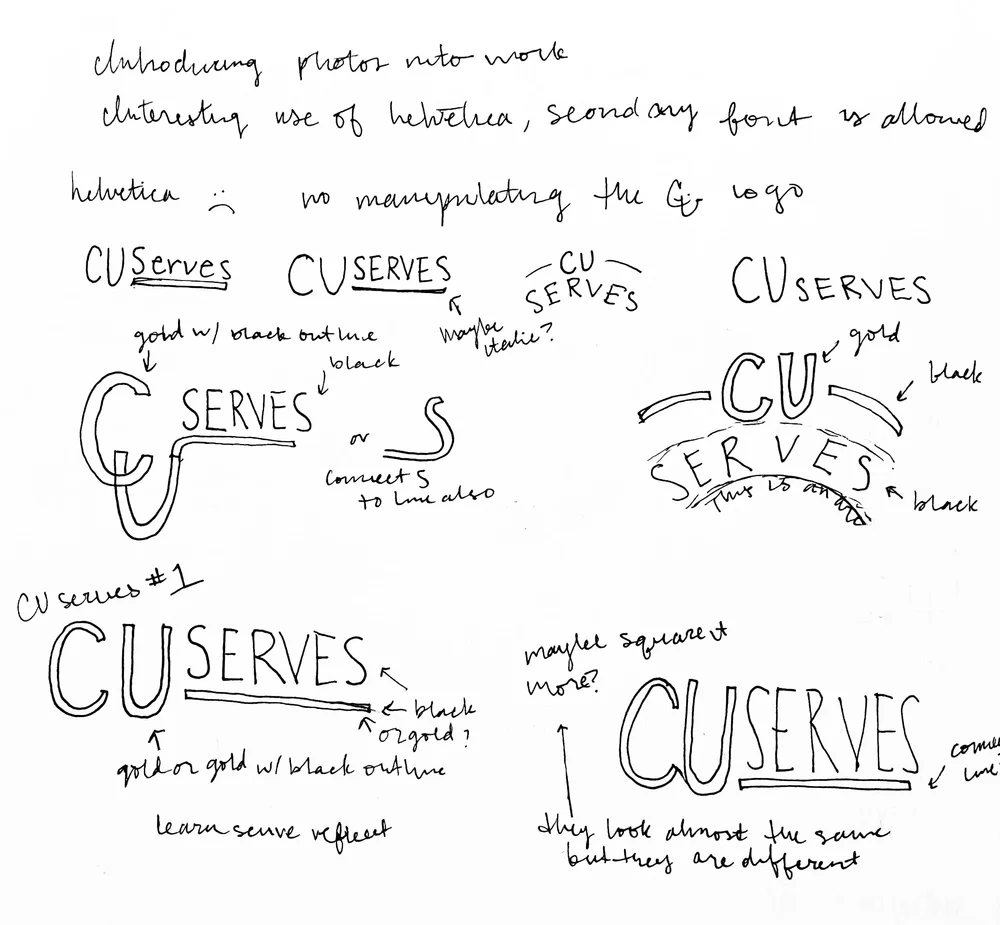 Introducing photos into work
Interesting use of helvetica, secondary font is allowed
helvetica :( no manipulating the CU logo
CU Serves
CU SERVES
CU
SERVES
CU SERVES
maybe
italic?
gold w/ black outline
black
CU SERVES
or S
connect S
to line also
gold
black
CU
SERVES
This is an arc
black
CU serves #1
CU SERVES
black
or gold?
gold or gold w/ black outline
learn serve reflect
maybe square it
more?
CU SERVES
line?
they look almost the same
but they are different